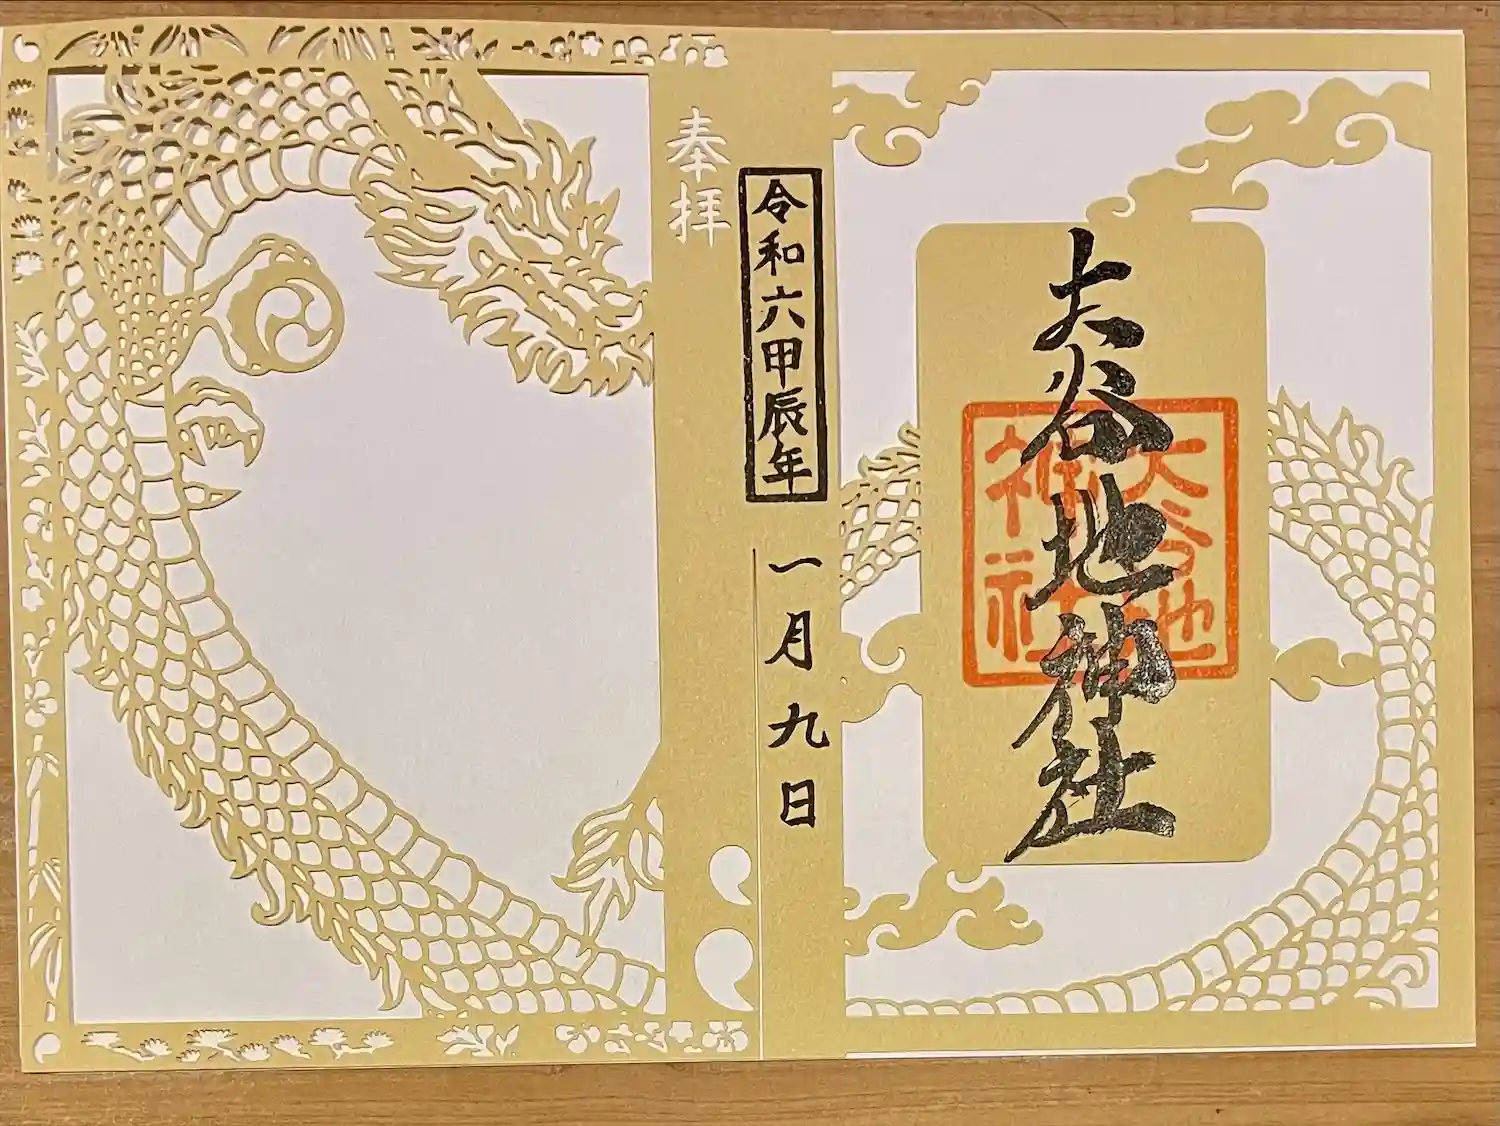 大谷地神社
大谷地
神社
令和六甲辰年
一月九日
奉拝